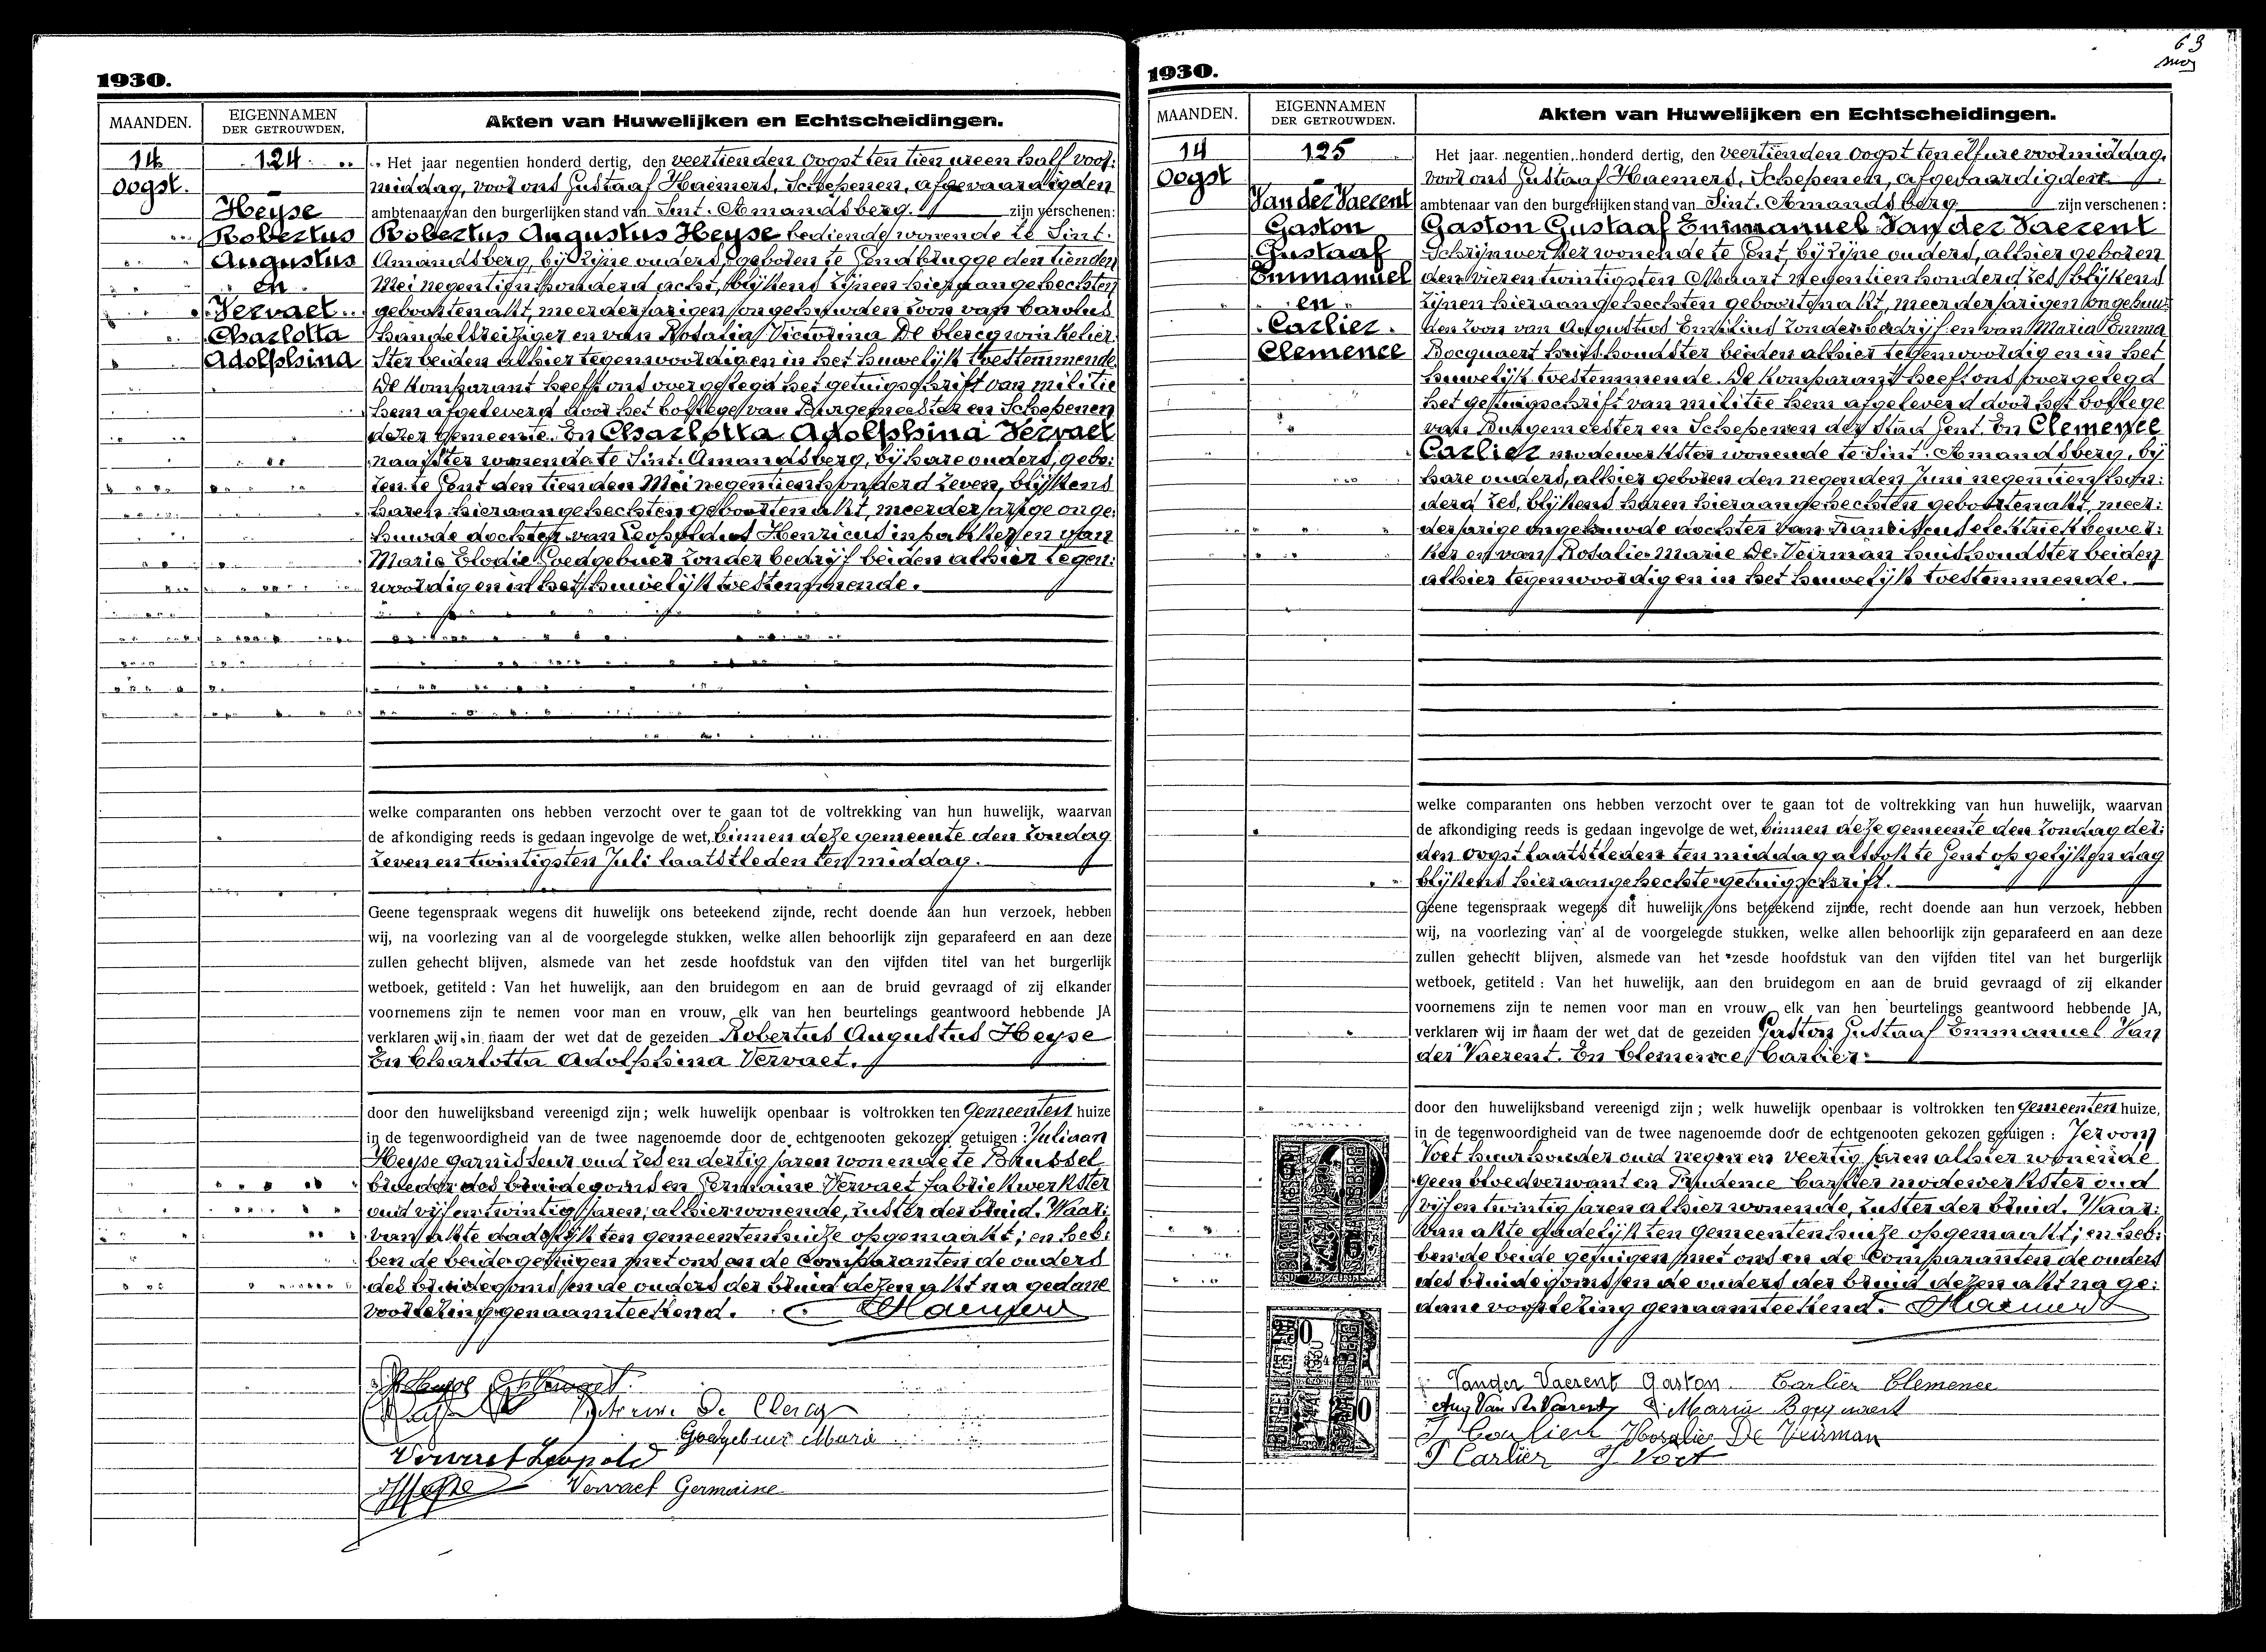 1930.
MAANDEN.
EIGENNAMEN
DER GETROUWDEN.
Akten van Huwelijken en Echtscheidingen.
14
Oogst.
124
Heyse
Robertus
Augustus
en
Vervaet
Charlotta
Adolphina
Het jaar negentien honderd dertig, den veertienden Oogst ten tien uren half voor:
middag, voor ons Gustaaf Haemers, Schepenen, afgevaardigden
ambtenaar van den burgerlijken stand van Sint. Amandsberg. zijn verschenen:
Robertus Augustus Heyse bediende wonende te Sint.
Amandsberg, bij zijne ouders, geboren te Gendbrugge den tienden
Mei negentienhonderd acht, blijkens zijnen hieraangehechten
geboortenakt, meerderjarigen ongehuwden zoon van Carolus
handelsreiziger en van Rosalia Victorina De Clercq winkelier:
ster beiden alhier tegenwoordig en in het huwelijk toestemmende.
De komparant heeft ons overgelegd het getuigschrift van militie
hem afgeleverd door het kollege van Burgemeester en Schepenen
dezer gemeente. En Charlotta Adolphina Vervaet
naaister wonende te Sint. Amandsberg, bij hare ouders, gebo:
ren te Gent den tienden Mei negentienhonderd zeven, blijkens
haren hieraangehechten geboortenakt, meerderjarige onge:
huwde dochter van Leopoldus Henricus inpakker en van
Marie Elodie Goedgebuer zonder bedrijf beiden alhier tegen:
woordig en in het huwelijk toestemmende.
welke comparanten ons hebben verzocht over te gaan tot de voltrekking van hun huwelijk, waarvan
de afkondiging reeds is gedaan ingevolge de wet, binnen deze gemeente den zondag
zeven en twintigsten Juli laatstleden ten middag.
Geene tegenspraak wegens dit huwelijk ons beteekend zijnde, recht doende aan hun verzoek, hebben
wij, na voorlezing van al de voorgelegde stukken, welke allen behoorlijk zijn geparafeerd en aan deze
zullen gehecht blijven, alsmede van het zesde hoofdstuk van den vijfden titel van het burgerlijk
wetboek, getiteld : Van het huwelijk, aan den bruidegom en aan de bruid gevraagd of zij elkander
voornemens zijn te nemen voor man en vrouw, elk van hen beurtelings geantwoord hebbende JA
verklaren wij in naam der wet dat de gezeiden Robertus Augustus Heyse
En Charlotta Adolphina Vervaet.
door den huwelijksband vereenigd zijn; welk huwelijk openbaar is voltrokken ten Gemeenten huize
in de tegenwoordigheid van de twee nagenoemde door de echtgenooten gekozen getuigen : Juliaan
Heyse garnisseur oud zes en dertig jaren wonende te Brussel
broeder des bruidegoms en Germaine Vervaet fabriekwerkster
oud vijf en twintig jaren, alhier wonende, zuster der bruid. Waar:
van akte dadelijk ten gemeentenhuize opgemaakt; en heb:
ben de beide getuigen met ons en de Comparanten de ouders
des bruidegoms en de ouders der bruid dezen akt na gedane
voorlezing genaamteekend. Haemers
De Clercq
Goedgebuer Marie
Vervaet Leopold
Vervaet Germaine
63
1930.
MAANDEN.
EIGENNAMEN
DER GETROUWDEN.
Akten van Huwelijken en Echtscheidingen.
14
Oogst
125
Van der Vaerent
Gaston
Gustaaf
Emmanuel
en
Carlier
Clemence
Het jaar negentien honderd dertig, den veertienden Oogst ten elf ure voormiddag,
voor ons Gustaaf Haemers, Schepenen, afgevaardigden
ambtenaar van den burgerlijken stand van Sint. Amandsberg zijn verschenen :
Gaston Gustaaf Emmanuel Van der Vaerent
Schrijnwerker wonende te Gent, bij zijne ouders, alhier geboren
den vier en twintigsten Maart negentienhonderd zes, blijkens
zijnen hieraangehechten geboortenakt, meerderjarigen ongehuw:
den zoon van Augustus Emilius zonder bedrijf en van Maria Emma
Bocquaert huishoudster beiden alhier tegenwoordig en in het
huwelijk toestemmende. De komparant heeft ons overgelegd
het getuigschrift van militie hem afgeleverd door het kollege
van Burgemeester en Schepenen der Stad Gent. En Clemence
Carlier modewerkster wonende te Sint. Amandsberg, bij
hare ouders, alhier geboren den negenden Juni negentienhon:
derd zes, blijkens haren hieraangehechten geboortenakt, meer:
derjarige ongehuwde dochter van Franciscus elektriekbewer:
ker en van Rosalie Marie De Veirman huishoudster beiden
alhier tegenwoordig en in het huwelijk toestemmende.
welke comparanten ons hebben verzocht over te gaan tot de voltrekking van hun huwelijk, waarvan
de afkondiging reeds is gedaan ingevolge de wet, binnen deze gemeente den zondag der:
den Oogst laatstleden ten middag alsook te Gent op gelijken dag
blijkens hieraangehechte getuigschrift.
Geene tegenspraak wegens dit huwelijk ons beteekend zijnde, recht doende aan hun verzoek, hebben
wij, na voorlezing van al de voorgelegde stukken, welke allen behoorlijk zijn geparafeerd en aan deze
zullen gehecht blijven, alsmede van het zesde hoofdstuk van den vijfden titel van het burgerlijk
wetboek, getiteld : Van het huwelijk, aan den bruidegom en aan de bruid gevraagd of zij elkander
voornemens zijn te nemen voor man en vrouw elk van hen beurtelings geantwoord hebbende JA,
verklaren wij in naam der wet dat de gezeiden Gaston Gustaaf Emmanuel Van
der Vaerent. En Clemence Carlier.
door den huwelijksband vereenigd zijn ; welk huwelijk openbaar is voltrokken ten gemeenten huize,
in de tegenwoordigheid van de twee nagenoemde door de echtgenooten gekozen getuigen :
Voet huurhouder oud negen en veertig jaren alhier wonende
geen bloedverwant en Prudence Carlier modewerkster oud
vijf en twintig jaren alhier wonende, zuster der bruid. Waar:
van akte dadelijk ten Gemeentenhuize opgemaakt; en heb:
ben de beide getuigen met ons en de Comparanten de ouders
des bruidegoms en de ouders der bruid dezen akt na ge:
dane voorlezing genaamteekend. Haemers
Vander Vaerent Gaston Carlier Clemence
Aug Van der Vaerent Maria Bocquaert
Carlier Rosalie De Veirman
P Carlier J Voet